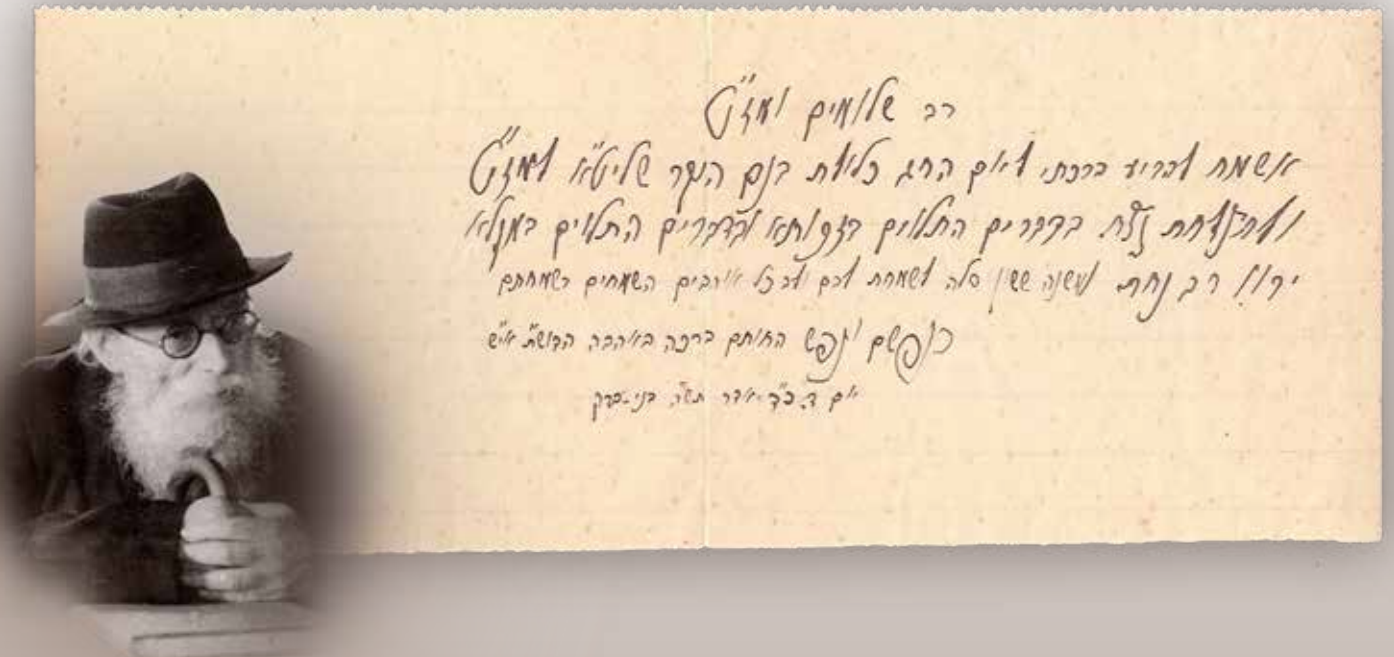 רב שלומים ומזט"
אשמח להביע ברכתי ליום החג כלולת בנם היקר שליט"א למזט"
ולהצלחת נצח. בדברים התלוים בזכותא ובדברים התלוים במזלא
ירוו רב נחת ששון סלה לשמחת לבם ולב כל אוהבים השמחים בשמחתם
כנפשם ונפש החותם ברכה באהבה
יום ד. כ"ד אדר בני-ברק